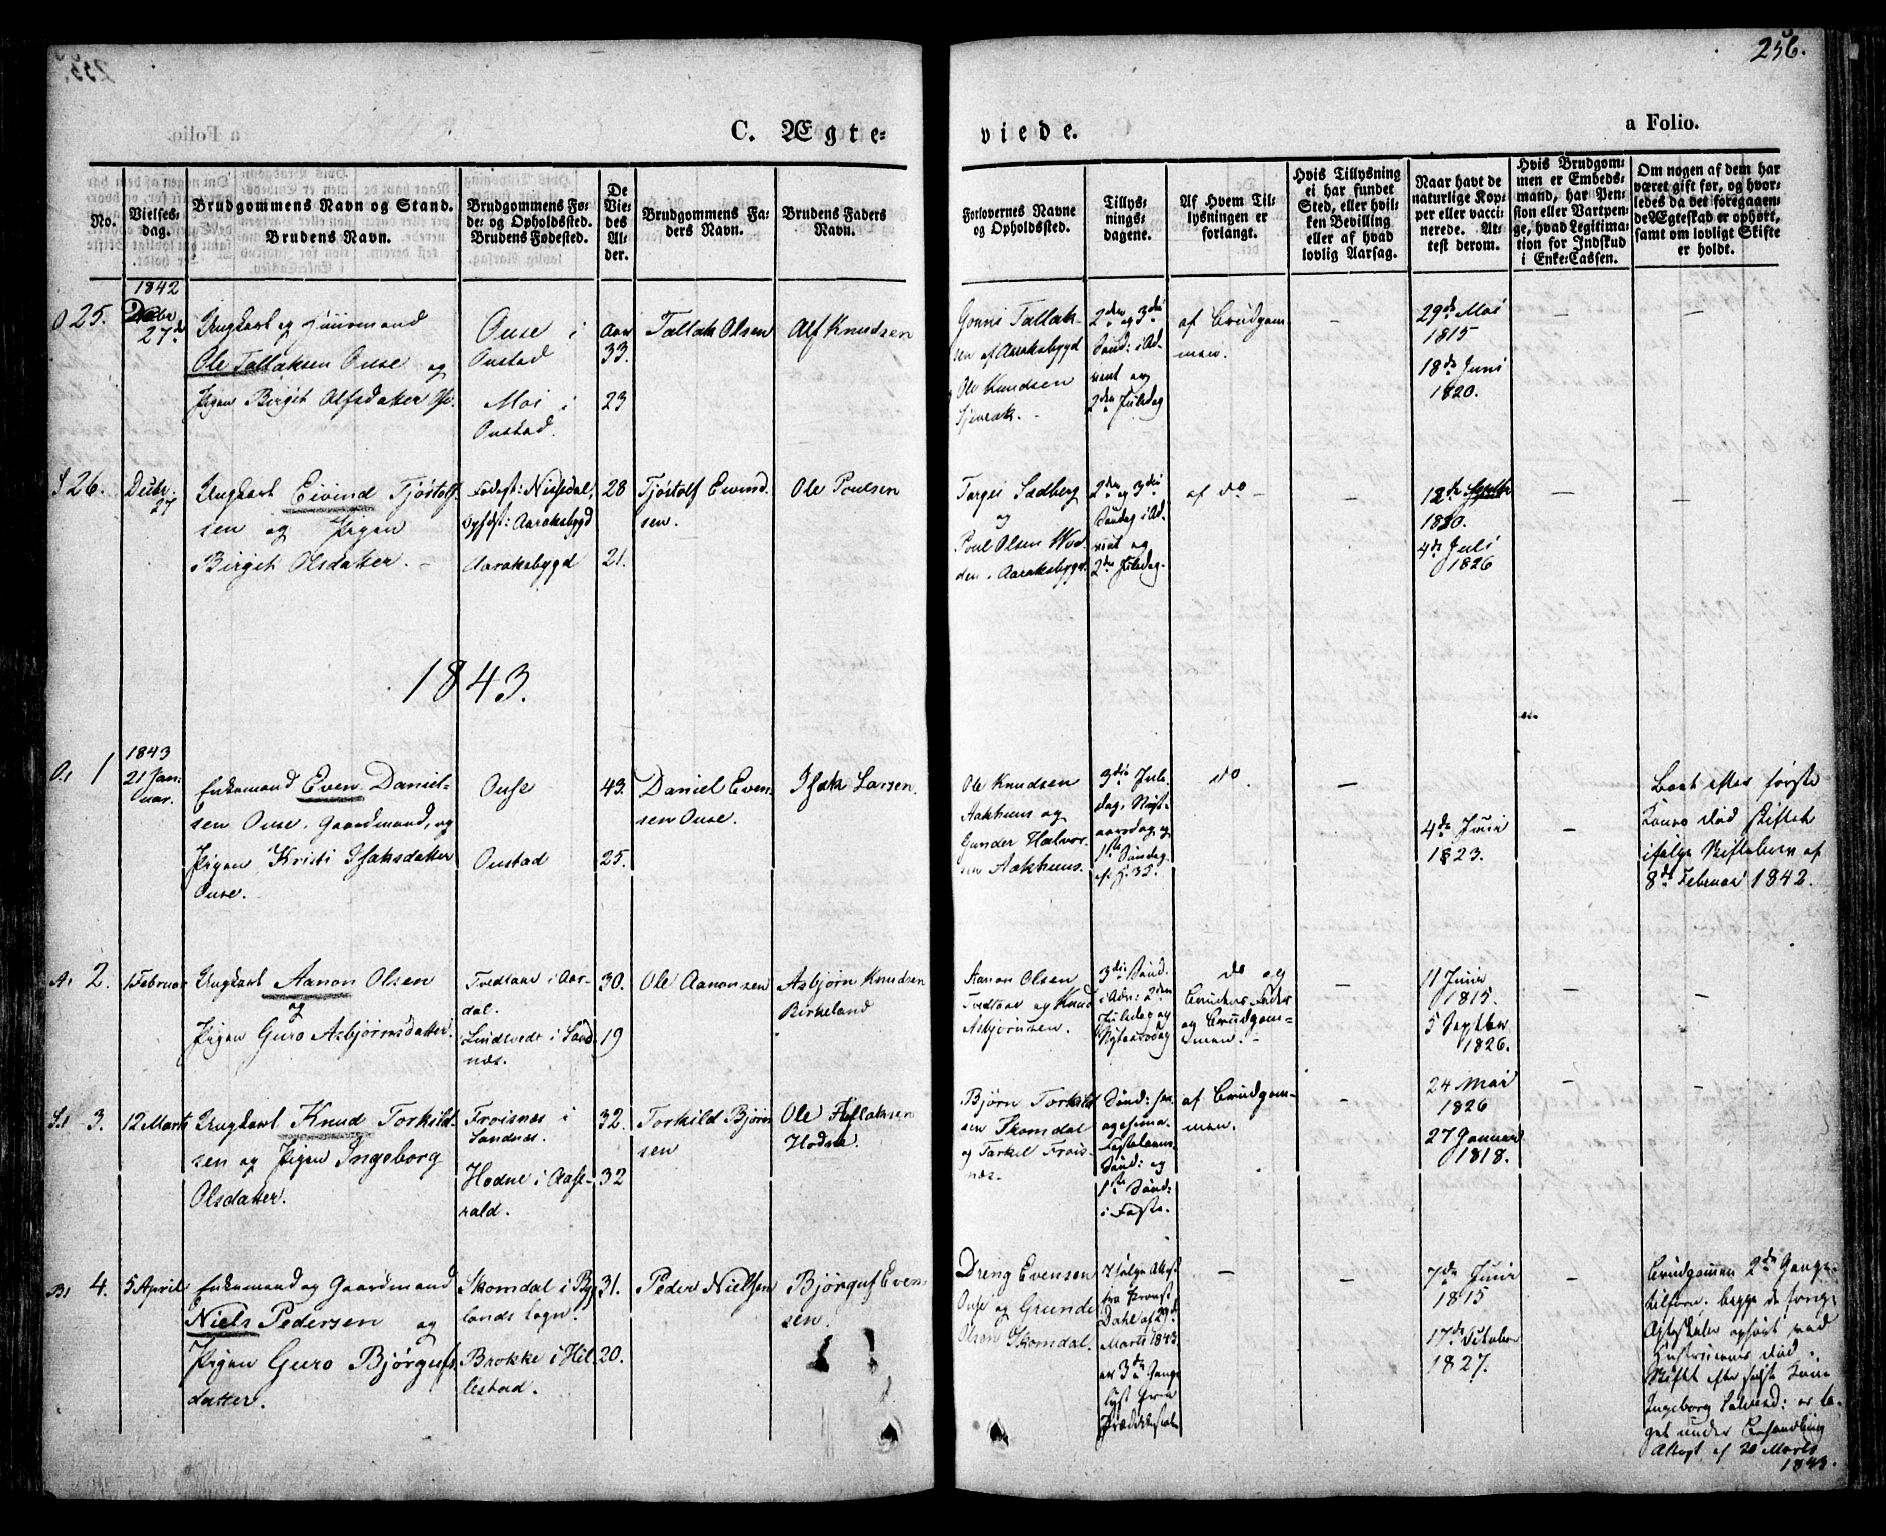 256.
C. Ægte=
viede.
a Folio.
No.
Vielses-
dag.
Brudgommens Navn og Stand.
Brudens Navn.
Brudgommens Fø-
de- og Opholdssted.
Brudens Fødested.
De
Vie-
des
Al-
der.
Brudgommens Fa-
ders Navn.
Brudens Faders
Navn.
Forlovernes Navne
og Opholdssted.
Tillys-
nings-
dagene.
Af Hvem Til-
lysningen er
forlangt.
Hvis Tillysning
ei har fundet
Sted, eller hvil-
ken Bevilling
eller af hvad
lovlig Aarsag.
Naar havt de
naturlige Kop-
per eller vacci-
nerede. At-
test derom.
Hvis Brudgom-
men er Embeds-
mand, har Pen-
sion eller Vartpen-
ge, hvad Legitima-
tion for Indskud
i Enke-Cassen.
Om nogen af dem har
været gift før, og hvor-
ledes da det foregaaen-
de Ægteskab er ophørt,
samt om lovligt Skifte
er holdt.
1842
O 25.
27de
Ungkarl og
Ole Tallaksen Ouse og
Pigen Birgit Alfsdatter
Ouse i
Oustad
Moi i
Oustad.
Aar
33.
23
Tallak Olsen
Alf Knudsen
Gonni Tallak-
sen af Aaraksbygd
Ole Knudsen
2den og 3die
Sønd: i Ad-
vent og
2den Juledag
af Brudgom-
men.
29de Mai
1815
18de Juni
1820.
S 26.
Decbr.
27
Ungkarl Eivind Tjøstolf-
sen og Pigen
Birgit Olsdatter.
Fødest: Nissedal,
Aaraksbygd
Aaraksbygd
28
21.
Tjøstolf Eivind-
sen.
Ole Poulsen
Targei Sædberg
og
Poul Olsen
Aaraksbygd.
2den og 3die
Søndag i Ad-
vent og
2den Juledag.
af do
1820.
4de Juli
1826
1843.
O, 1
1843
21 Jan-
uar.
Enkemand Even Daniel-
sen Ouse, Gaardmand, og
Pigen Kristi Isaksdatter
Ouse.
Ouse
Oustad
43.
25.
Daniel Even-
sen Ouse.
Isak Larsen.
Ole Knudsen
Aakhuus og
Gunder Halvor-
sen Aakhuus.
3die Jule-
dag, Nyt-
aarsdag og
1ste Søndag
do.
4de Juni
1823.
efter første
Kones Død Skiftet
ifølge Skiftebrev af
8de Februar 1842.
A, 2.
1 Februar
Ungkarl Aanon Olsen
og
Pigen Guro Asbjørnsdatter.
Tvedtane i Aar-
dal.
Lindtvedt i Sand-
næs.
30.
19
Ole Aanonsen
Asbjørn Knudsen
Birkeland
Aanon Olsen
Tvedtane og Knud
Asbjørnsen.
3die Sønd.
i Adv: 2den
Juledag og
Nytaarsdag
do og
Brudens Fader
og Brudgom-
men.
11 Juni
1815.
5 Septbr
1826.
S, 3.
12 Marts
Ungkarl Knud Torkild-
sen og Pigen Ingeborg
Olsdatter.
Froisnes i
Sandnes.
Hodne i Aase-
rald.
32.
32
Torkild Bjørn-
sen
Ole Aslaksen
Hodne.
Bjørn Torkild-
sen Skomdal
og Tarkel Frois-
næs.
Fastelavns
Sønd: og
1ste Sønd:
i Faste.
af Brudgom-
men.
24 Mai
1826
27 Januar
1818.
B, 4.
5 April
Enkemand og Gaardmand
Niels Pedersen og
Pigen Guro Bjørgufs-
datter.
Skomdal i Byg-
lands Sogn.
Brokke i Hil-
lestad.
31.
20.
Peder Nielsen
Bjørguf Even-
sen.
Dreng Evensen
Ouse og Grunde
Olson Skomdal.
Ifølge Attest
fra Provst
Dahl af 29de
Marts 1843
er 3de Gange
lyst fra
Prædikestolen
7de Juni
1815
17de October
1827.
Brudgommen 2de Gange
tilforn. begge de forrige
Ægteskaber ophørt ved
Hustruernes Død.
Skiftet efter sidste Kone
Ingeborg Salvesd: er ta-
get under Behandling
Attest af 20 Marts
1843.